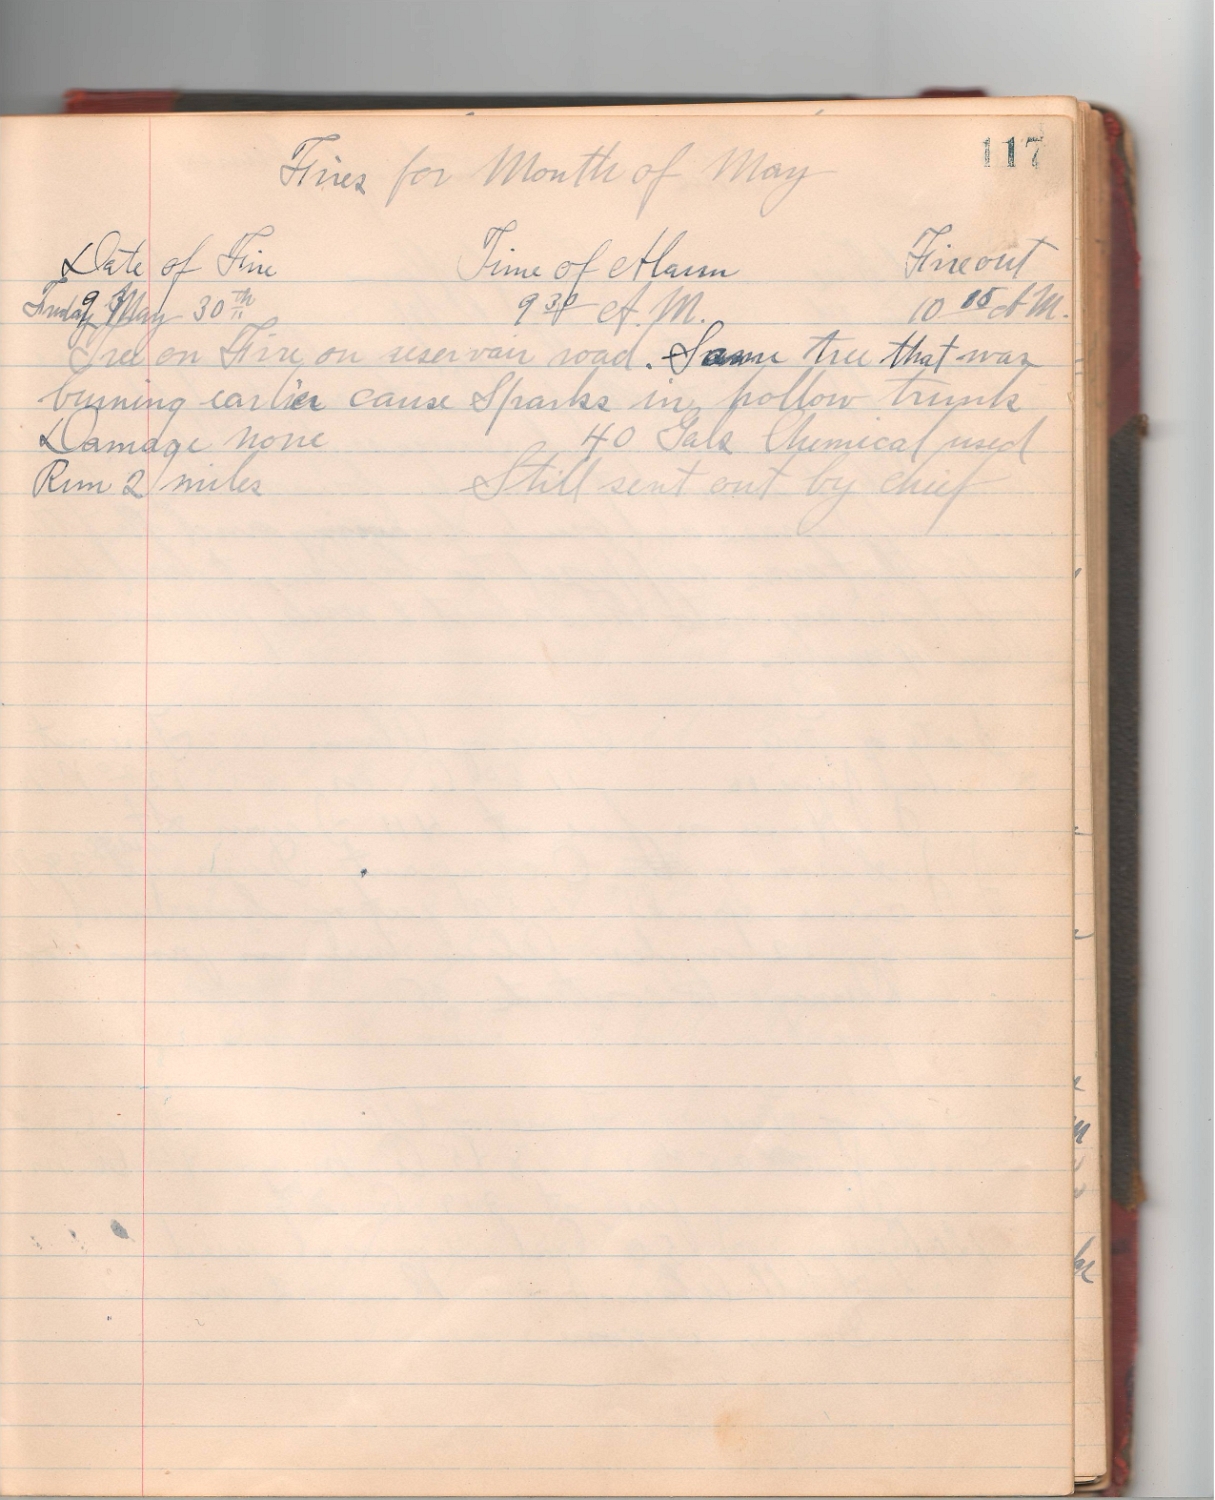 117
Fires for Month of May
Date of Fire Time of Alarm Fire out
Friday May 30th 9 30 A.M. 10 15 A.M.
Tree on Fire on reservair road. Same tree that was
burning earlier cause Sparks in hollow trunk
Damage none 40 Gals Chemical used
Run 2 miles Still sent out by chief